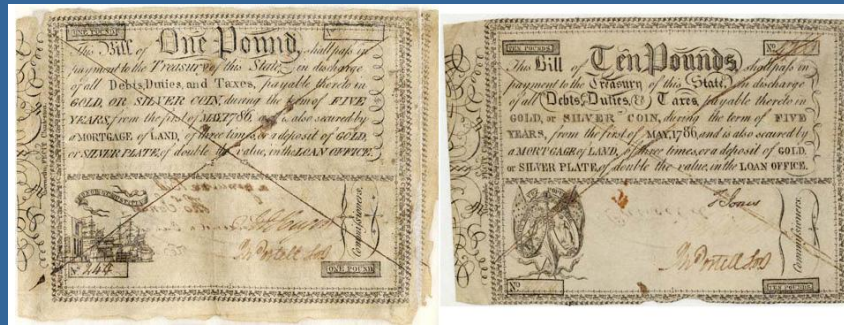 ONE POUND
No
This Bill of One Pound shall pass in
payment to the Treasury of this State, in discharge
of all Debts, Duties, and Taxes, payable thereto in
GOLD, OR SILVER COIN, during the term of FIVE
YEARS, from the first of MAY, 1786, and is also secured by
a MORTGAGE of LAND, of three times, or a deposit of GOLD,
or SILVER PLATE, of double the value, in the LOAN OFFICE.
Commissioners.
No 244
ONE POUND
TEN POUNDS
No
This Bill of Ten Pounds shall pass in
payment to the Treasury of this State, in discharge
of all Debts, Duties, & Taxes, payable thereto in
GOLD, or SILVER COIN, during the term of FIVE
YEARS, from the first of MAY, 1786, and is also secured by
a MORTGAGE of LAND, of three times, or a deposit of GOLD,
or SILVER PLATE, of double the value, in the LOAN OFFICE.
Jones
Commissioners.
No
TEN POUNDS